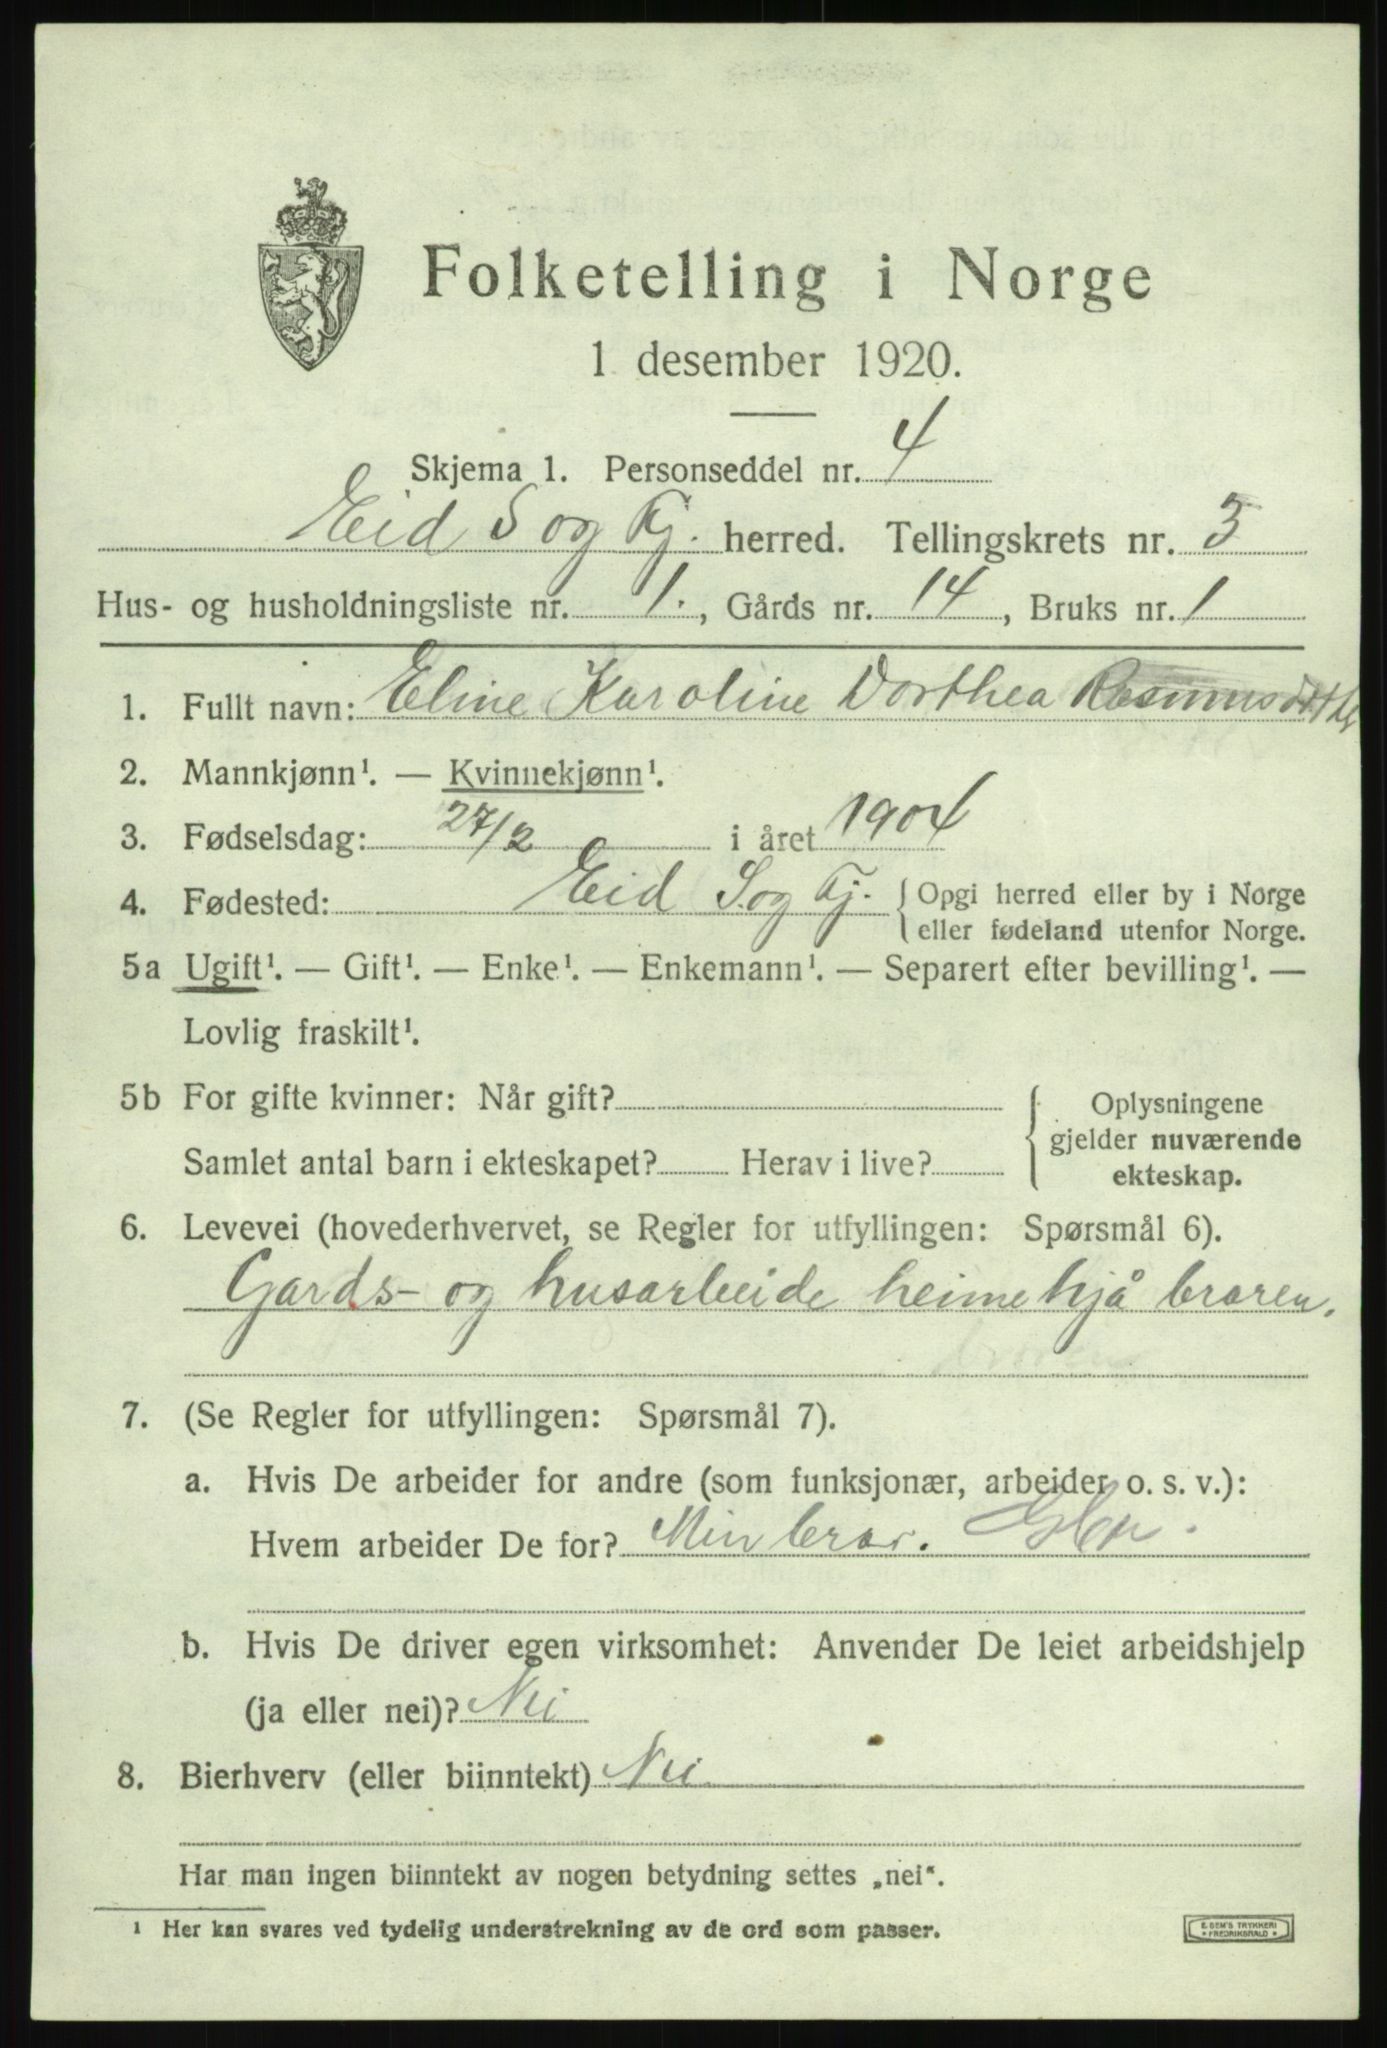 Folketelling i Norge
1 desember 1920.
Skjema 1. Personseddel nr. 4
Eid S og Fj. herred. Tellingskrets nr. 3
Hus- og husholdningsliste nr. 1., Gårds nr. 14, Bruks nr. 1
1. Fullt navn: Eline Karoline Dorthea
2. Mannkjønn¹. — Kvinnekjønn¹.
3. Fødselsdag: 27/2 i året 1904
4. Fødested: Eid S. og Fj. { Opgi herred eller by i Norge
eller fødeland utenfor Norge.
5a Ugift¹. — Gift¹. — Enke¹. — Enkemann¹. — Separert efter bevilling¹. —
Lovlig fraskilt¹.
5b For gifte kvinner: Når gift?
Samlet antal barn i ekteskapet? Herav i live?
Oplysningene
gjelder nuværende
ekteskap.
6. Levevei (hovederhvervet, se Regler for utfyllingen: Spørsmål 6).
Gards- og husarbeide heime hjå broren.
7. (Se Regler for utfyllingen: Spørsmål 7).
a. Hvis De arbeider for andre (som funksjonær, arbeider o. s. v.):
Hvem arbeider De for? Min bror.
b. Hvis De driver egen virksomhet: Anvender De leiet arbeidshjelp
(ja eller nei)? Nei
8. Bierhverv (eller biinntekt) Nei
Har man ingen biinntekt av nogen betydning settes „nei“.
¹ Her kan svares ved tydelig understrekning av de ord som passer.
E. SEM'S TRYKKERI
* FREDRIKSHALD *